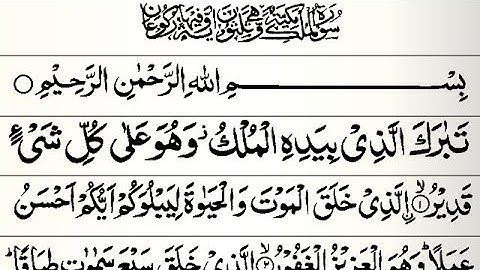 سُورَةُ الْمُلْكِ مَكِّيَّةٌ وَهِيَ ثَلٰثُونَ اٰيَةً وَّفِيهَا رُكُوعَانِ
بِسْمِ اللهِ الرَّحْمٰنِ الرَّحِيْمِ ○
تَبٰرَكَ الَّذِىْ بِيَدِهِ الْمُلْكُ ۫ وَهُوَ عَلٰى كُلِّ شَىْءٍ
قَدِيْرُ ۨ ﴿۱﴾ ۙ الَّذِىْ خَلَقَ الْمَوْتَ وَالْحَيٰوةَ لِيَبْلُوَكُمْ اَيُّكُمْ اَحْسَنُ
عَمَلًا ؕ وَهُوَ الْعَزِيْزُ الْغَفُوْرُ ۙ ﴿۲﴾ الَّذِىْ خَلَقَ سَبْعَ سَمٰوٰتٍ طِبَاقًا ؕ